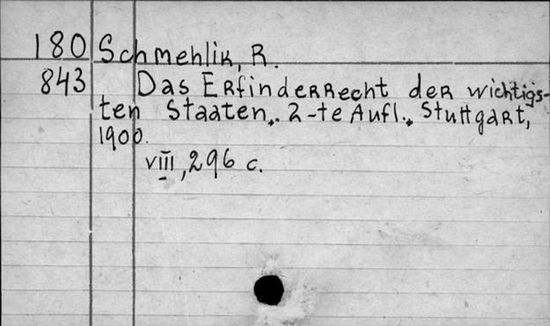 180 Schmehlik, R.
843 Das Erfinderrecht der wichtigs-
ten Staaten. 2-te Aufl. Stuttgart,
1900.
VIII, 296 c.